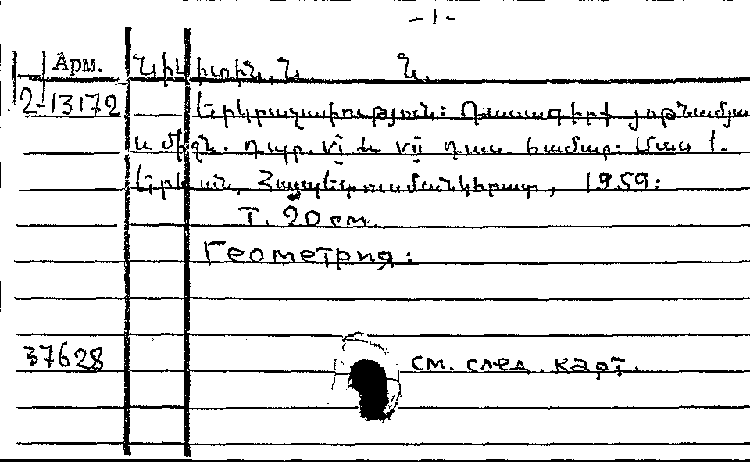 -1-
Арм. Նիկիտին, Ն. Ն.
2-13172 Երկրաչափություն: Դասագիրք յոթնամյա
և միջն. դպր. VI և VII դաս. համար: Մաս 1.
Երևան, Հայպետուսմանկհրատ, 1959:
Т. 20 см.
Геометрия:
37628 см. след. карт.